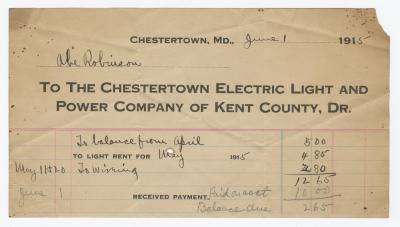 CHESTERTOWN, MD., June 1 1915
Abe Robinson
TO THE CHESTERTOWN ELECTRIC LIGHT AND
POWER COMPANY OF KENT COUNTY, DR.
To balance from April 5 00
TO LIGHT RENT FOR May 1915 4 85
May 11 & 20 To Wiring 2 80
12 65
June 1 RECEIVED PAYMENT, Paid on acct 10 00
Balance due 2 65